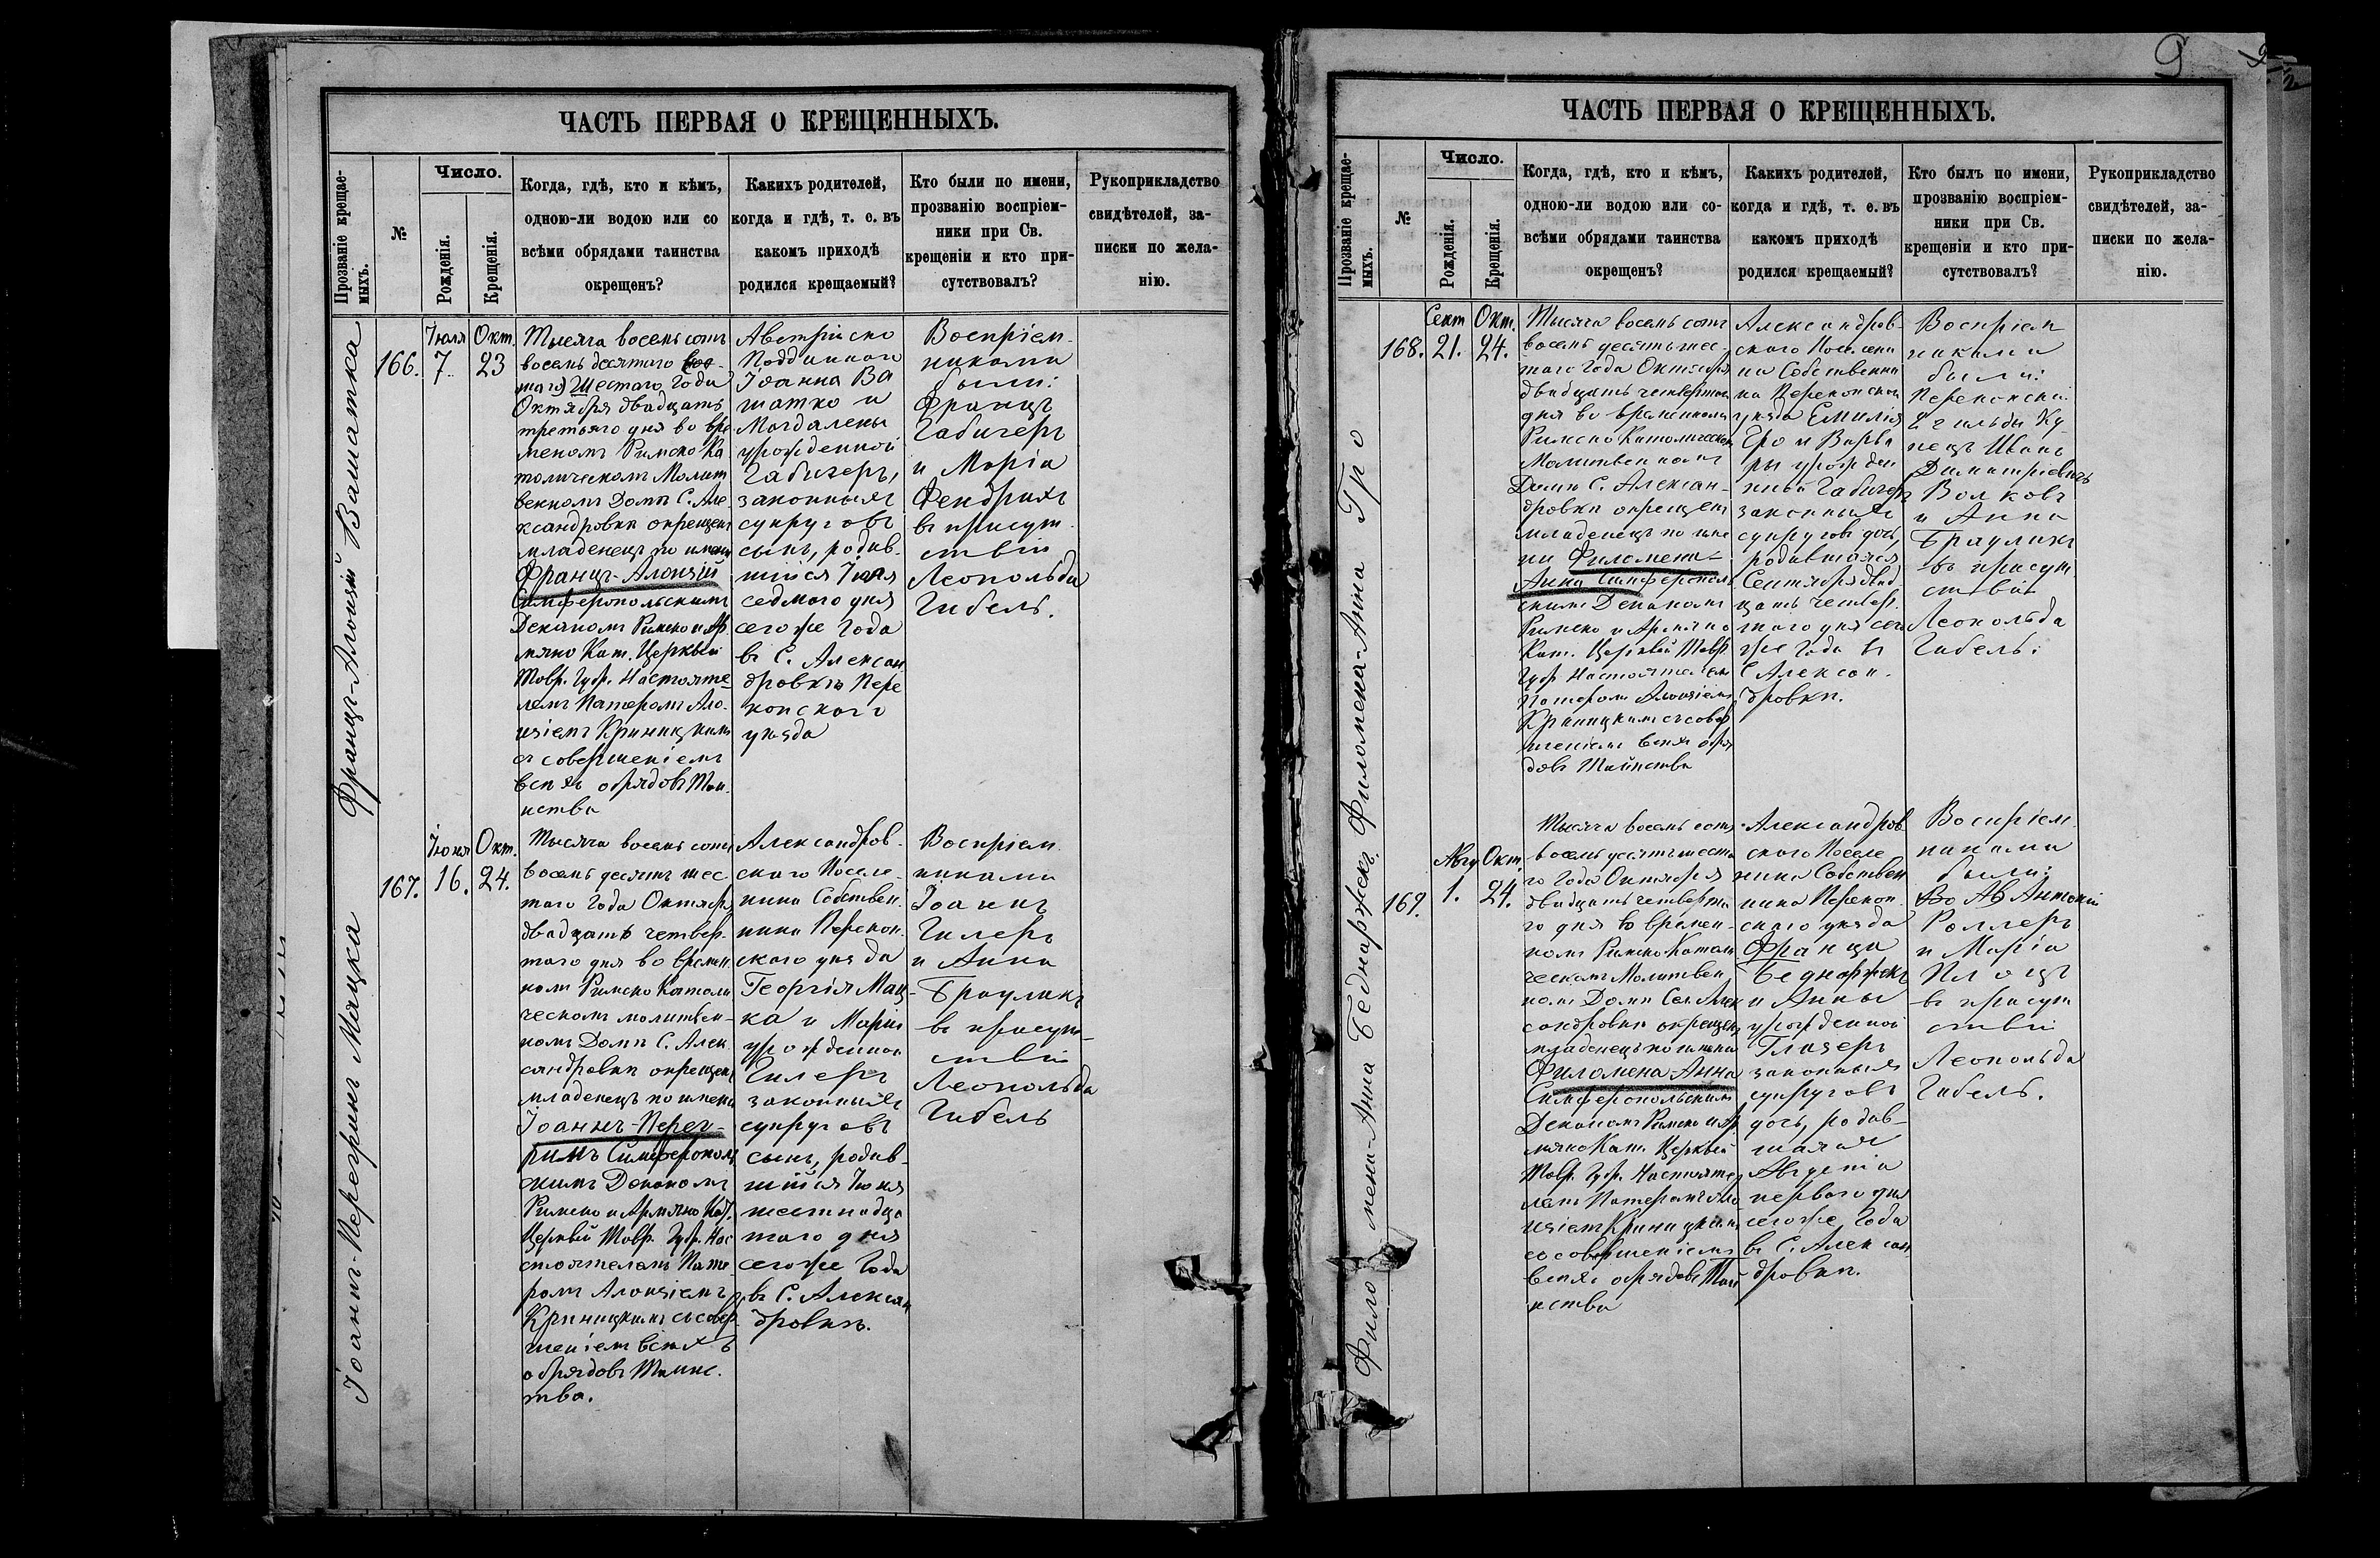 ЧАСТЬ ПЕРВАЯ О КРЕЩЕННЫХЪ.
Прозваніе крещае-
мыхъ.
№
Число.
Рожденія.
Крещенія.
Когда, гдѣ, кто и кѣмъ,
одною-ли водою или со
всѣми обрядами таинства
окрещенъ?
Какихъ родителей,
когда и гдѣ, т. е. въ
какомъ приходѣ
родился крещаемый?
Кто были по имени,
прозванію воспріем-
ники при Св.
крещеніи и кто при-
сутствовалъ?
Рукоприкладство
свидѣтелей, за-
писки по жела-
нію.
Францъ-Алоизій Вашатка
166.
Іюля
7.
Окт.
23
Тысяча восемьсотъ
восемьдесятаго
шестаго Года
Октября двадцать
третьяго дня во вре
менномъ Римско Ка
толическомъ Молит
венномъ Домѣ С. Але
ксандровки окрещенъ
младенецъ по имени
Францъ-Алоизій
Симферопольскимъ
Деканомъ Римско и Ар
мяно Кат. Церквей
Тавр. Губ. Настояте-
лемъ Патеромъ Ало-
изіемъ Криницкимъ
съ совершеніемъ
всѣхъ обрядовъ Таи-
нства
Австрійско
Подданнаго
Іоанна Ва
шатко и
Магдалены
урожденной
Габигеръ,
законныхъ
супруговъ
сынъ, родив-
шійся Іюля
седмого дня
сего же Года
въ С. Алексан
дровкѣ Пере
копскаго
уѣзда
Воспріем-
никами
были:
Францъ
Габигеръ
и Марія
Фендрихъ
въ присут-
ствіи
Леопольда
Гибель.
Іоаннъ-Перегринъ Мацка
167.
Іюня
16.
Окт.
24.
Тысяча восемьсотъ
восемьдесятъ шес-
таго Года Октября
двадцать четвер-
таго дня во времен-
номъ Римско Католи
ческомъ молитвен-
номъ Домѣ С. Алек
сандровки окрещенъ
младенецъ по имени
Іоаннъ-Перег-
ринъ Симферополь
скимъ Деканомъ
Римско и Армяно Кат.
Церквей Тавр. Губ. Нас
тоятелемъ Пате-
ромъ Алоизіемъ
Криницкимъ съ совер-
шеніемъ всѣхъ
обрядовъ Таинс-
тва.
Александров-
скаго Поселе-
нина Собствен-
ника Перекоп-
скаго уѣзда
Георгія Мац-
ка и Маріи
урожденной
Гилеръ
законныхъ
супруговъ
сынъ, родив-
шійся Іюня
шестнадца
таго дня
сего же Года
въ С. Алексан
дровкѣ.
Воспріем-
никами
Іоаннъ
Гилеръ
и Анна
Браулихъ
въ присут-
ствіи
Леопольда
Гибель
9
ЧАСТЬ ПЕРВАЯ О КРЕЩЕННЫХЪ.
Прозваніе крещае-
мыхъ.
№
Число.
Рожденія.
Крещенія.
Когда, гдѣ, кто и кѣмъ,
одною-ли водою или со-
всѣми обрядами таинства
окрещенъ?
Какихъ родителей,
когда и гдѣ, т. е. въ
какомъ приходѣ
родился крещаемый?
Кто былъ по имени,
прозванію воспріем-
ники при Св.
крещеніи и кто при-
сутствовалъ?
Рукоприкладство
свидѣтелей, за-
писки по жела-
нію.
Филомена-Анна Гро
168.
Сент
21.
Окт.
24.
Тысяча восемьсотъ
восемьдесятъ шес-
таго Года Октября
двадцать четвертаго
дня во временномъ
Римско Католическомъ
Молитвенномъ
Домѣ С. Алексан-
дровки окрещенъ
младенецъ по име
ни Филомена-
Анна Симферополь
скимъ Деканомъ
Римско и Армяно
Кат. Церквей Тавр.
Губ. Настоятелемъ
Патеромъ Алоизіемъ
Криницкимъ съ совер
шеніемъ всѣхъ обря
довъ Таинства
Александров-
скаго Поселени
на Собственни
ка Перекопскаго
уѣзда Емилія
Гро и Варва
ры урожден
ной Габигеръ
законныхъ
супруговъ дочь,
родившаяся
Сентября двад
цать четвер-
таго дня сего
же Года въ
С. Алексан-
дровки.
Воспріем
никами
были:
Перекопскій
2 гильды Ку
пецъ Иванъ
Димитріевичъ
Волковъ
и Анна
Браулихъ
въ присут-
ствіи
Леопольда
Гибель.
Филомена-Анна Беднаржекъ.
169.
Авгу
1.
Окт.
24.
Тысяча восемьсотъ
восемьдесятъ шеста
го Года Октября
двадцать четверта
го дня во времен-
номъ Римско Католи
ческомъ Молитвен
номъ Домѣ Сел. Алек
сандровки окрещенъ
младенецъ по имени
Филомена Анна
Симферопольскимъ
Деканомъ Римско и Ар
мяно Кат. Церквей
Тавр. Губ. Настояте
лемъ Патеромъ Ало
изіемъ Криницкимъ
со совершеніемъ
всѣхъ обрядовъ Таи
нства
Александров
скаго Поселе
нина Собствен
ника Перекоп-
скаго уѣзда
Франца
Беднаржекъ
и Анны
урожденной
Глазеръ
законныхъ
супруговъ
дочь, родив-
шаяся
Августа
перваго дня
сего же Года
въ С. Алексан
дровки.
Воспріем
никами
были:
Антоній
Роллеръ
и Марія
Плоцъ
въ присут
ствіи
Леопольда
Гибель.